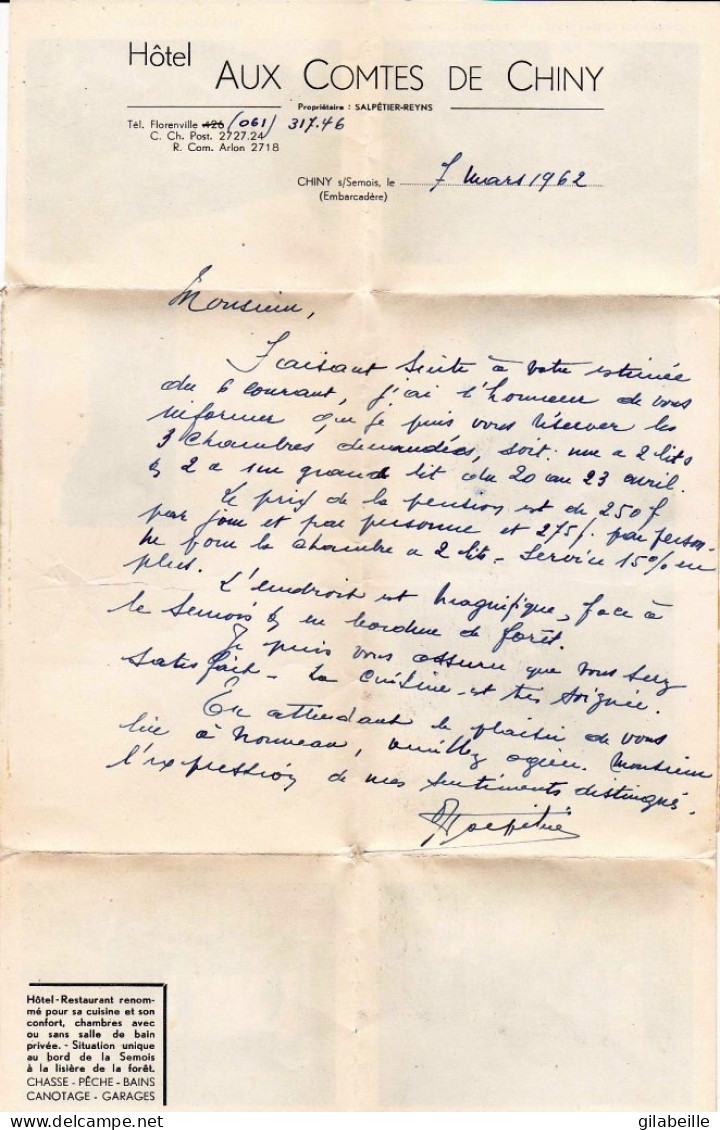 Hôtel
AUX COMTES DE CHINY
Propriétaire : SALPÉTIER-REYNS
Tél. Florenville 426 (061) 317.46
C. Ch. Post. 2727.24
R. Com. Arlon 2718
CHINY s/Semois, le 7 mars 1962
(Embarcadère)
Monsieur,
Faisant suite à votre estimée
du 6 courant, j'ai l'honneur de vous
informer que je puis vous réserver les
3 chambres demandées, soit: une a 2 lits
& 2 a un grand lit du 20 au 23 avril.
Le prix de la pension est de 250 f
par jour et par personne et 275 f. par person-
ne pour la chambre a 2 lits - Service 15% en
plus.
L'endroit est magnifique, face à
la Semois & en bordure de forêt.
Je puis vous assurer que vous serez
satisfait - La cuisine est très soignée.
En attendant le plaisir de vous
lire à nouveau, veuillez agréer. Monsieur
l'expression de mes sentiments distingués.
Salpétier
Hôtel-Restaurant renom-
mé pour sa cuisine et son
confort, chambres avec
ou sans salle de bain
privée. - Situation unique
au bord de la Semois
à la lisière de la forêt.
CHASSE - PÊCHE - BAINS
CANOTAGE - GARAGES
gilabeille